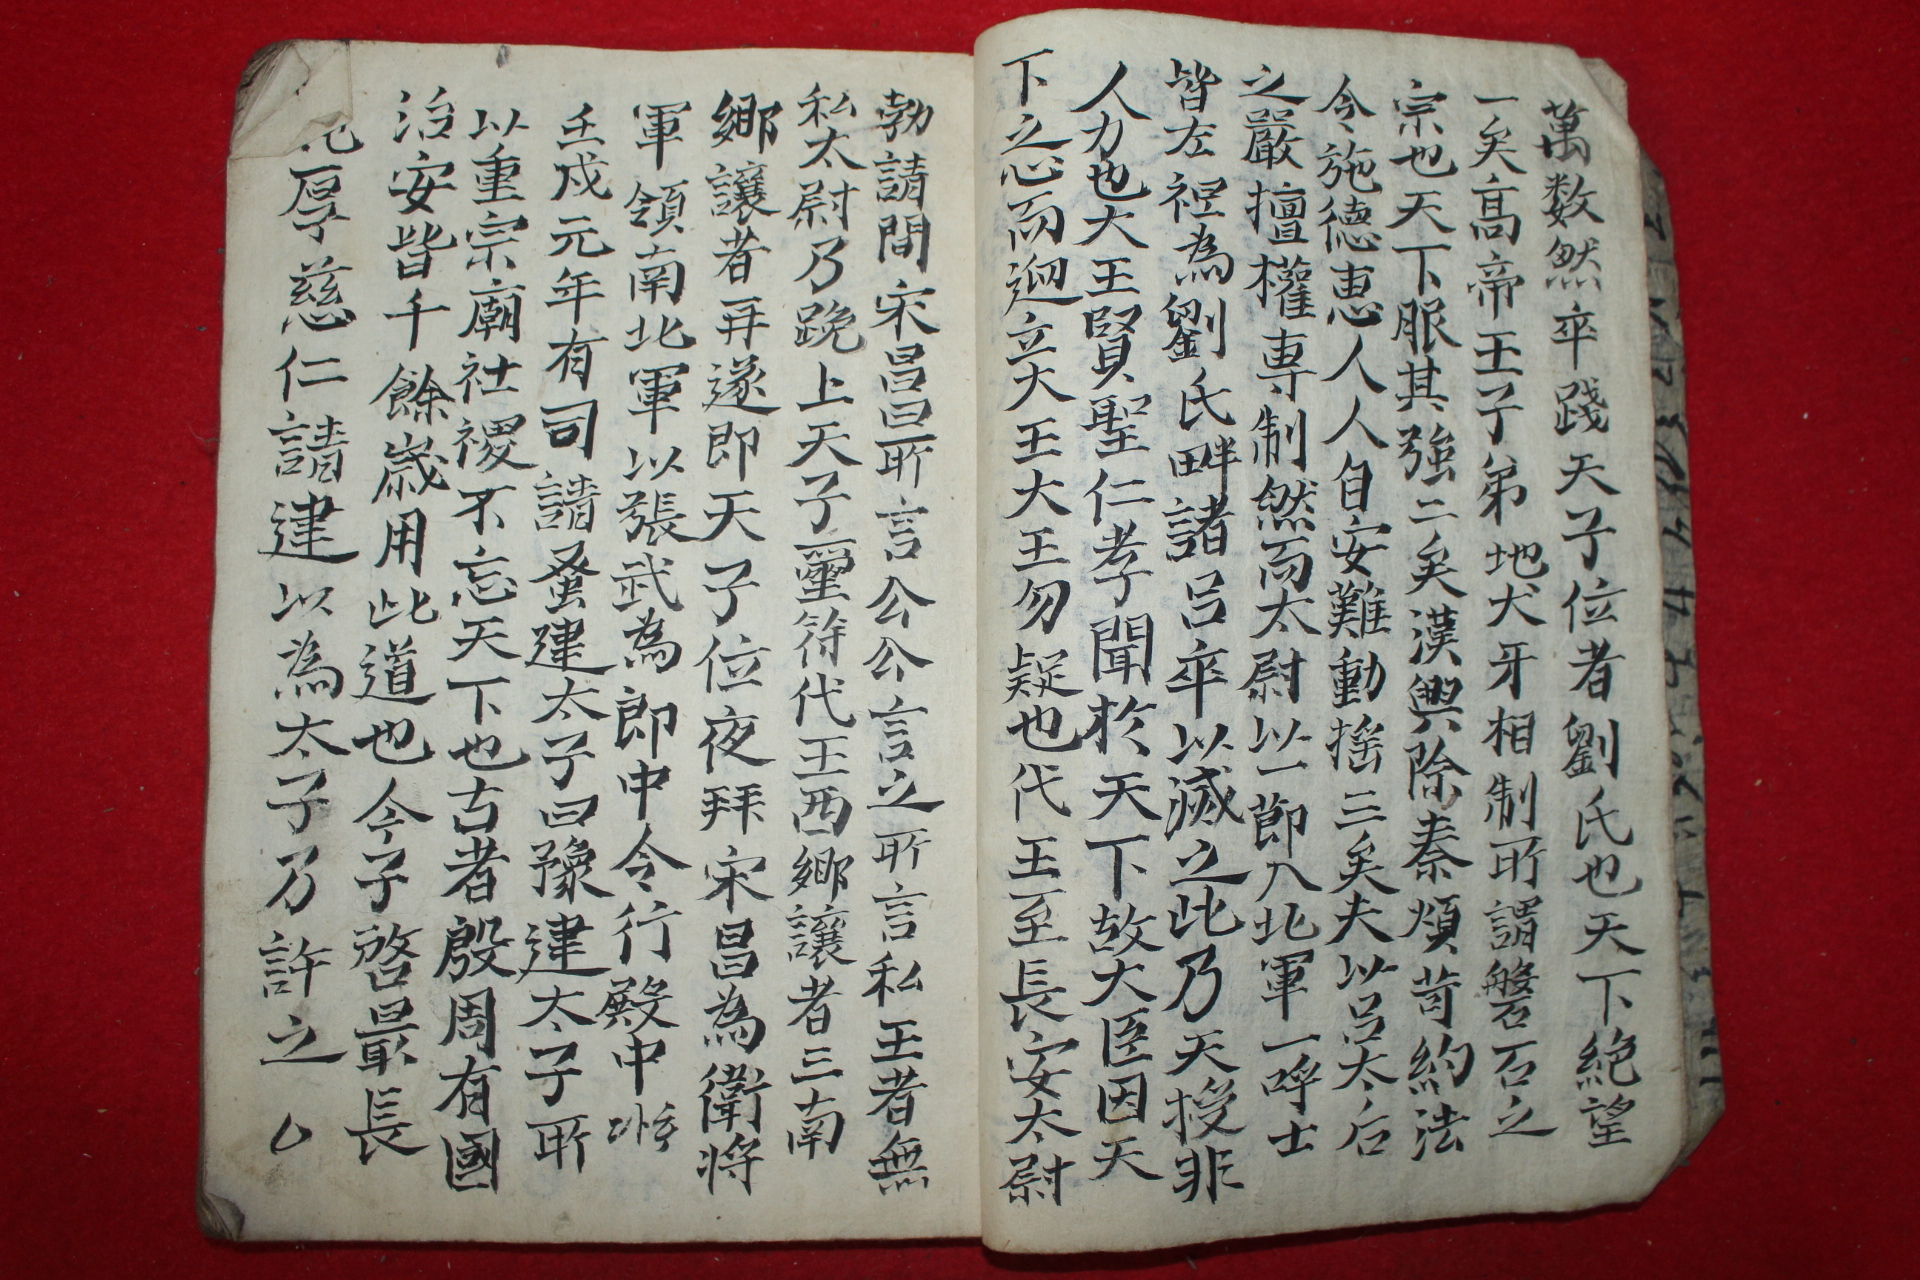 萬数然卒踐天子位者劉氏也天下絶望
一矣高帝王子弟地犬牙相制所謂磐石之
宗也天下服其強二矣漢興除秦煩苛約法
令施德惠人人自安難動搖三矣夫以吕太后
之嚴擅權専制然而太尉以一節入北軍一呼士
皆左袒為劉氏畔諸吕卒以滅之此乃天授非
人力也大王賢聖仁孝聞於天下故大臣因天
下之心而迎立大王大王勿疑也代王至長安太尉
勃請間宋昌曰所言公公言之所言私王者無
私太尉乃跪上天子璽符代王西鄕讓者三南
鄕讓者再遂即天子位夜拜宋昌為衛將
軍領南北軍以張武為郎中令行殿中
壬戌元年有司請蚤建太子曰豫建太子所
以重宗廟社稷不忘天下也古者殷周有國
治安皆千餘歲用此道也今子啓最長
厚慈仁請建以為太子乃許之